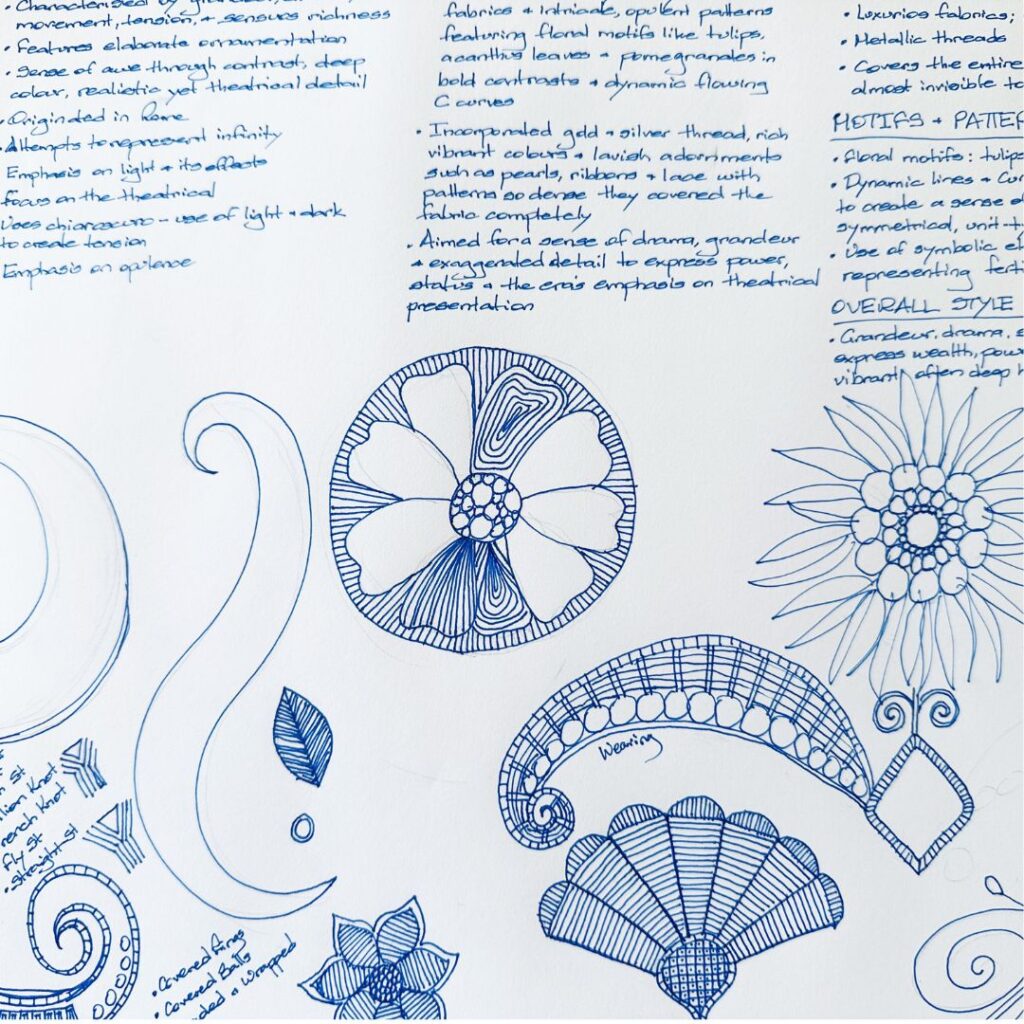 • Characterised by
movement, tension, + sensuous richness
• Features elaborate ornamentation
• Sense of awe through contrast, deep
colour, realistic yet theatrical detail
• Originated in Rome
• Attempts to represent infinity
Emphasis on light + its effects
focus on the theatrical
Uses chiaroscuro - use of light + dark
to create tension
Emphasis on opulence
fabrics + intricate, opulent patterns
featuring floral motifs like tulips,
acanthus leaves + pomegranates in
bold contrasts + dynamic flowing
C curves
• Incorporated gold + silver thread, rich
vibrant colours + lavish adornments
such as pearls, ribbons + lace with
patterns so dense they covered the
fabric completely
• Aimed for a sense of drama, grandeur
+ exaggerated detail to express power,
status + the era's emphasis on theatrical
presentation
• Luxurios fabrics;
• Metallic threads
• Covers the entire
almost invisible to
MOTIFS + PATTER
• Floral motifs: tulips
• Dynamic lines + Cur
to create a sense o
symmetrical, unit-ty
• Use of symbolic el
representing ferti
OVERALL STYLE
• Grandeur, drama, s
express wealth, pow
vibrant, often deep h
Weaving
n St
lian Knot
rench Knot
Fly St
• Straight St
• Covered Rings
• Covered Balls
ded + Wrapped